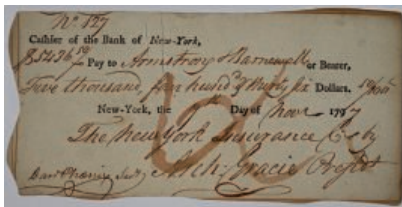 No. 127
Cashier of the Bank of New-York,
Pay to Armstrong & Barnewall or Bearer,
Five thousand, four hund'd & thirty six Dollars. 50/100
New-York, the Day of Nov 1797
The New York Insurance Co by
Arch. Gracie Presdt